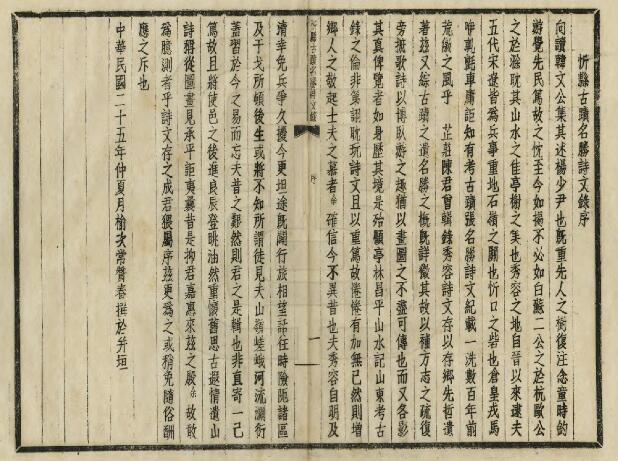 忻縣古蹟名勝詩文錄序
向讀韓文公集其述楊少尹也既重先人之
游覺先民篤故之忱至今如揭不必如白蘇二公之於杭歐公
之於滁耽其山水之佳亭榭之美也秀容之地自晉以來逮夫
五代宋遼皆為兵事重地石嶺之關也忻口之砦也倉皇戎馬
車庸詎知有考古蹟張名勝詩文紀載一洗數百年前
荒傖之風乎 芷莊陳君曾輯錄秀容詩文存以存鄉先哲遺
著茲又綜古蹟之遺名勝之概既詳徵其故以補方志之疏復
旁摭歌詩以博臥游之趣猶以畫圖之不盡可傳也而又各影
其真俾覽者如身歷其境是殆顧亭林昌平山水記山東考古
錄之倫非第詡耽玩詩文且以重篤故惓惓有加無已然則增
鄉人之敬起士夫之慕者余確信今不異昔也夫秀容自明及
清幸免兵爭久擾今更坦途既闢行旅相望話往時險阨諸區
及干戈所頓後生或將不知所謂徒見夫山嶺嵯峨河流瀰衍
蓋習於今之易而忘夫昔之艱然則君之是輯也非直寄一己
篤故且將使邑之後進良辰登眺油然重懷舊思古遐情遺山
詩稱從圖畫見承平詎夷曩昔是拘君嘉惠來茲之殷余故敢
為臆測者乎詩文存之成君猥屬序茲更為之或稍免隨俗酬
應之斥也
中華民國二十五年仲夏月榆次常贊春撰於并垣
古蹟名勝詩文錄
序
一